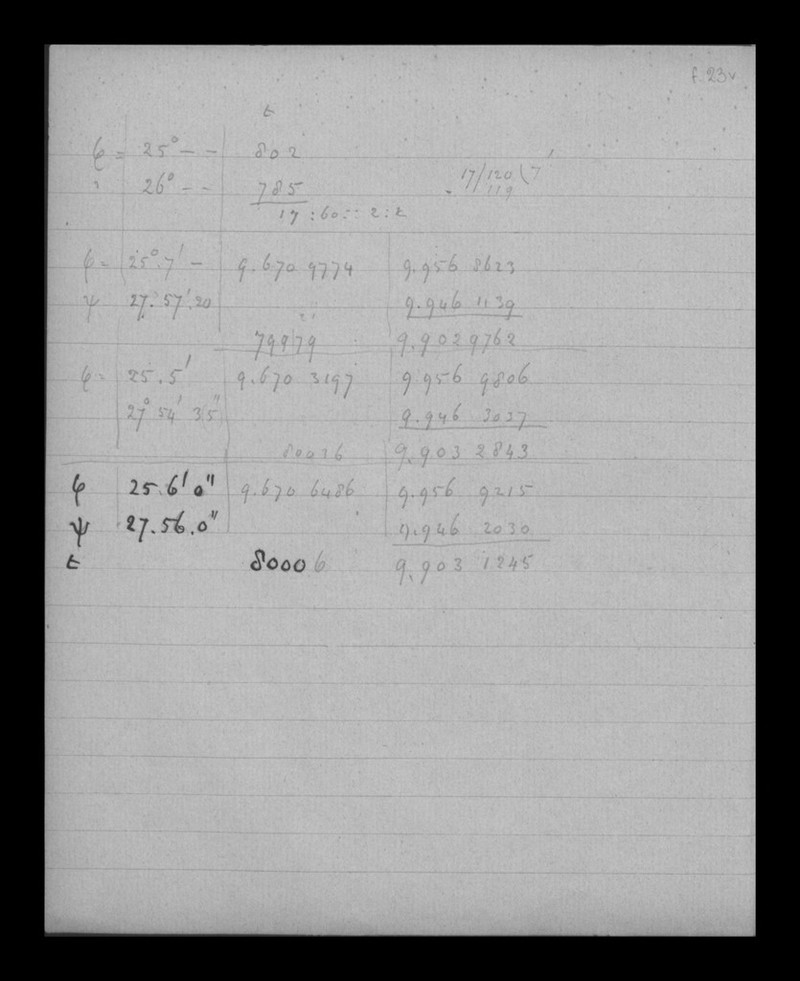 f. 23v
t
φ = 25° – – 802
" 26° – – 785 17/120(7'
119
17 : 60 :: 2 : t
φ = 25°.7' – 9.670 9774 9.956 8623
ψ 27.57'.20 9.946 1139
79979 9.9029762
φ = 25.5' 9.670 3197 9.956 9806
27° 54' 35" 9.946 3037
80036 9.903 2843
φ 25.6' 0" 9.670 6486 9.956 9215
ψ 27.56.0" 9.946 2030
t 80006 9.903 1245